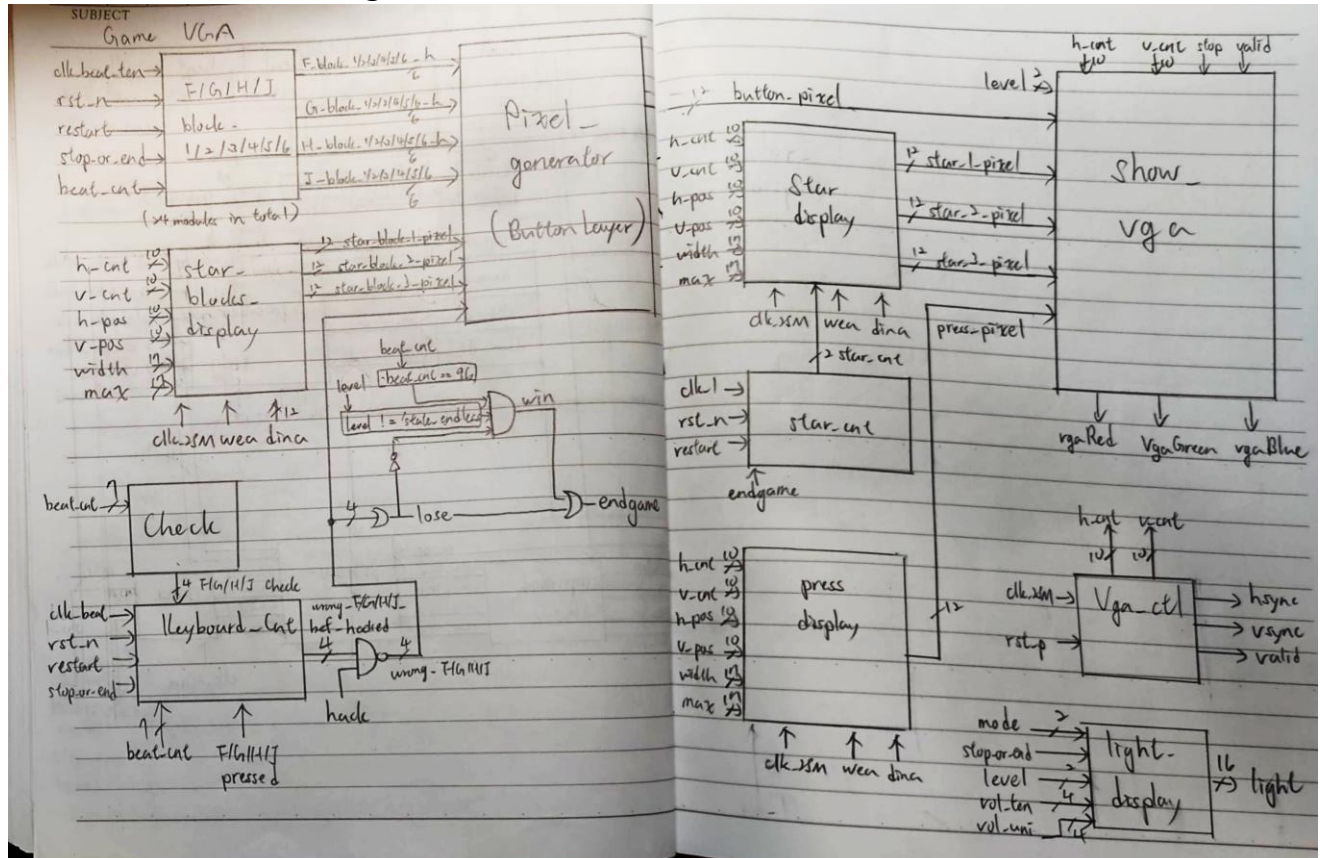 SUBJECT
Game VGA
clk_beat_ten
rst_n
restart
stop_or_end
beat_cnt
F/G/H/J
block_
1/2/3/4/5/6
(24 modules in total)
F_block_1/2/3/4/5/6_h
6
G_block_1/2/3/4/5/6_h
6
H_block_1/2/3/4/5/6_h
6
J_block_1/2/3/4/5/6
6
Pixel_
generator
(Button Layer)
h_cnt 10
v_cnt 10
h_pos 10
v_pos 10
width 17
max 17
star_
blocks_
display
12 star_block_1_pixel
12 star_block_2_pixel
12 star_block_3_pixel
clk_25M wea dina 12
beat_cnt
beat_cnt == 96
level
level != 'state_endless
win
4
lose
endgame
beat_cnt 7
Check
4 F/G/H/J check
clk_beat
rst_n
restart
stop_or_end
Keyboard_Cnt
wrong_F/G/H/J_
bef_hacked
4
4
wrong_F/G/H/J
hack
7
beat_cnt
F/G/H/J
pressed
h_cnt
10
v_cnt
10
stop
valid
level 2
12 button_pixel
h_cnt 10
v_cnt 10
h_pos 10
v_pos 10
width 17
max 17
Star
display
12 star_1_pixel
12 star_2_pixel
12 star_3_pixel
show_
vga
clk_25M wea dina
press_pixel
2 star_cnt
clk_1
rst_n
restart
star_cnt
endgame
vgaRed
VgaGreen
vgaBlue
h_cnt 10
v_cnt 10
h_pos 10
v_pos 10
width 17
max 17
press
display
12
clk_25M wea dina
h_cnt
v_cnt
10
10
clk_25M
rst_p
Vga_ctl
hsync
vsync
valid
mode 2
stop_or_end
level 2
vol_ten 4
vol_uni 4
light_
display
16
light